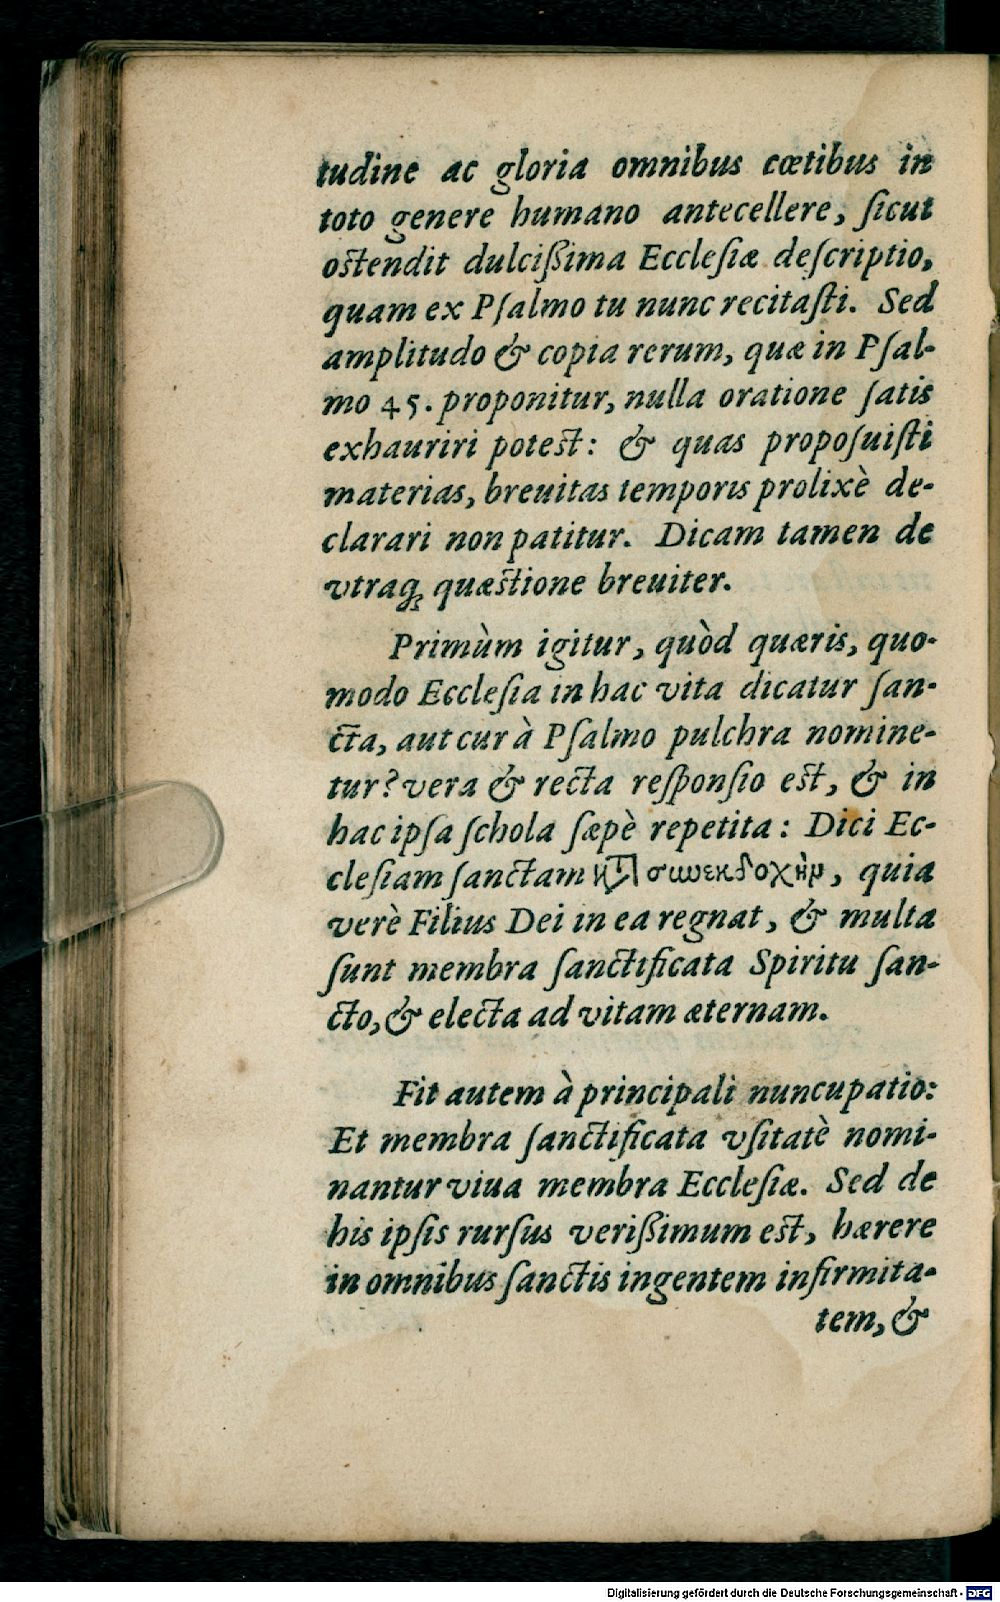 tudine ac gloria omnibus cœtibus in
toto genere humano antecellere, ſicut
oſtendit dulcißima Eccleſiæ deſcriptio,
quam ex Pſalmo tu nunc recitaſti. Sed
amplitudo & copia rerum, quæ in Pſal-
mo 45. proponitur, nulla oratione ſatis
exhauriri poteſt: & quas propoſuiſti
materias, breuitas temporis prolixè de-
clarari non patitur. Dicam tamen de
vtraq; quæſtione breuiter.
Primùm igitur, quòd quæris, quo-
modo Eccleſia in hac vita dicatur ſan-
cta, aut cur à Pſalmo pulchra nomine-
tur? vera & recta reſponſio eſt, & in
hac ipſa ſchola ſæpè repetita: Dici Ec-
cleſiam ſanctam κατὰ συνεκδοχὴν, quia
verè Filius Dei in ea regnat, & multa
ſunt membra ſanctificata Spiritu ſan-
cto, & electa ad vitam æternam.
Fit autem à principali nuncupatio:
Et membra ſanctificata vſitatè nomi-
nantur viua membra Eccleſiæ. Sed de
his ipſis rurſus verißimum eſt, hærere
in omnibus ſanctis ingentem infirmita-
tem, &
Digitalisierung gefördert durch die Deutsche Forschungsgemeinschaft - DFG